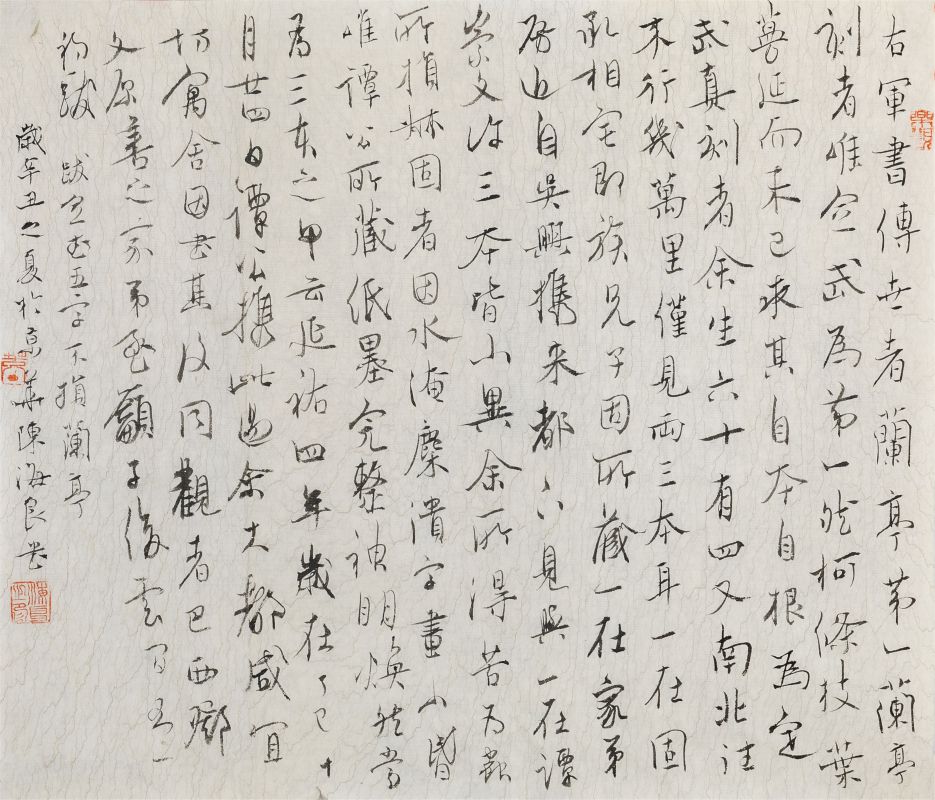 右軍書傳世者蘭亭第一蘭亭
刻者唯定武為第一然柯條枝葉
蔓延而未已求其自本自根為定
武真刻者余生六十有四又南北往
來行幾萬里僅見兩三本耳一在固
承相宅即族兄子因所藏一在家弟
自吳興攜來都下見與一在譚
崇文許三本皆小異余所得苦為
所損妹固者因水淹麋潰字畫小昏
唯譚公所藏紙墨完整神明煥然當
為三本之甲云延祐四年歲在丁巳十
月廿四日譚公攜此過余大都咸宜
坊寓舍因書其後同觀者巴西鄧
文原善之家弟孟籲子俊雲間
初跋 跋定武五字不損蘭亭
歲辛丑之夏於京華陳海良書